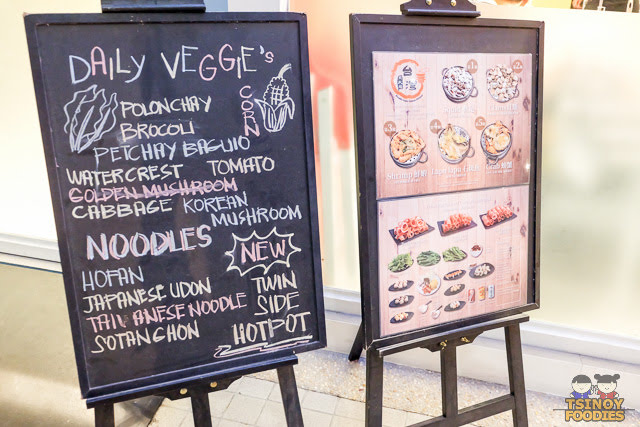 DAILY VEGGIE's
POLONCHAY
BROCOLI
CORN
PETCHAY BAGUIO
WATERCREST TOMATO
GOLDEN MUSHROOM
CABBAGE KOREAN
MUSHROOM
NOODLES
HOFAN
JAPANESE UDON
TAIWANESE NOODLE
SOTANGHON
NEW
TWIN
SIDE
HOTPOT
TSINOY
FOODIES